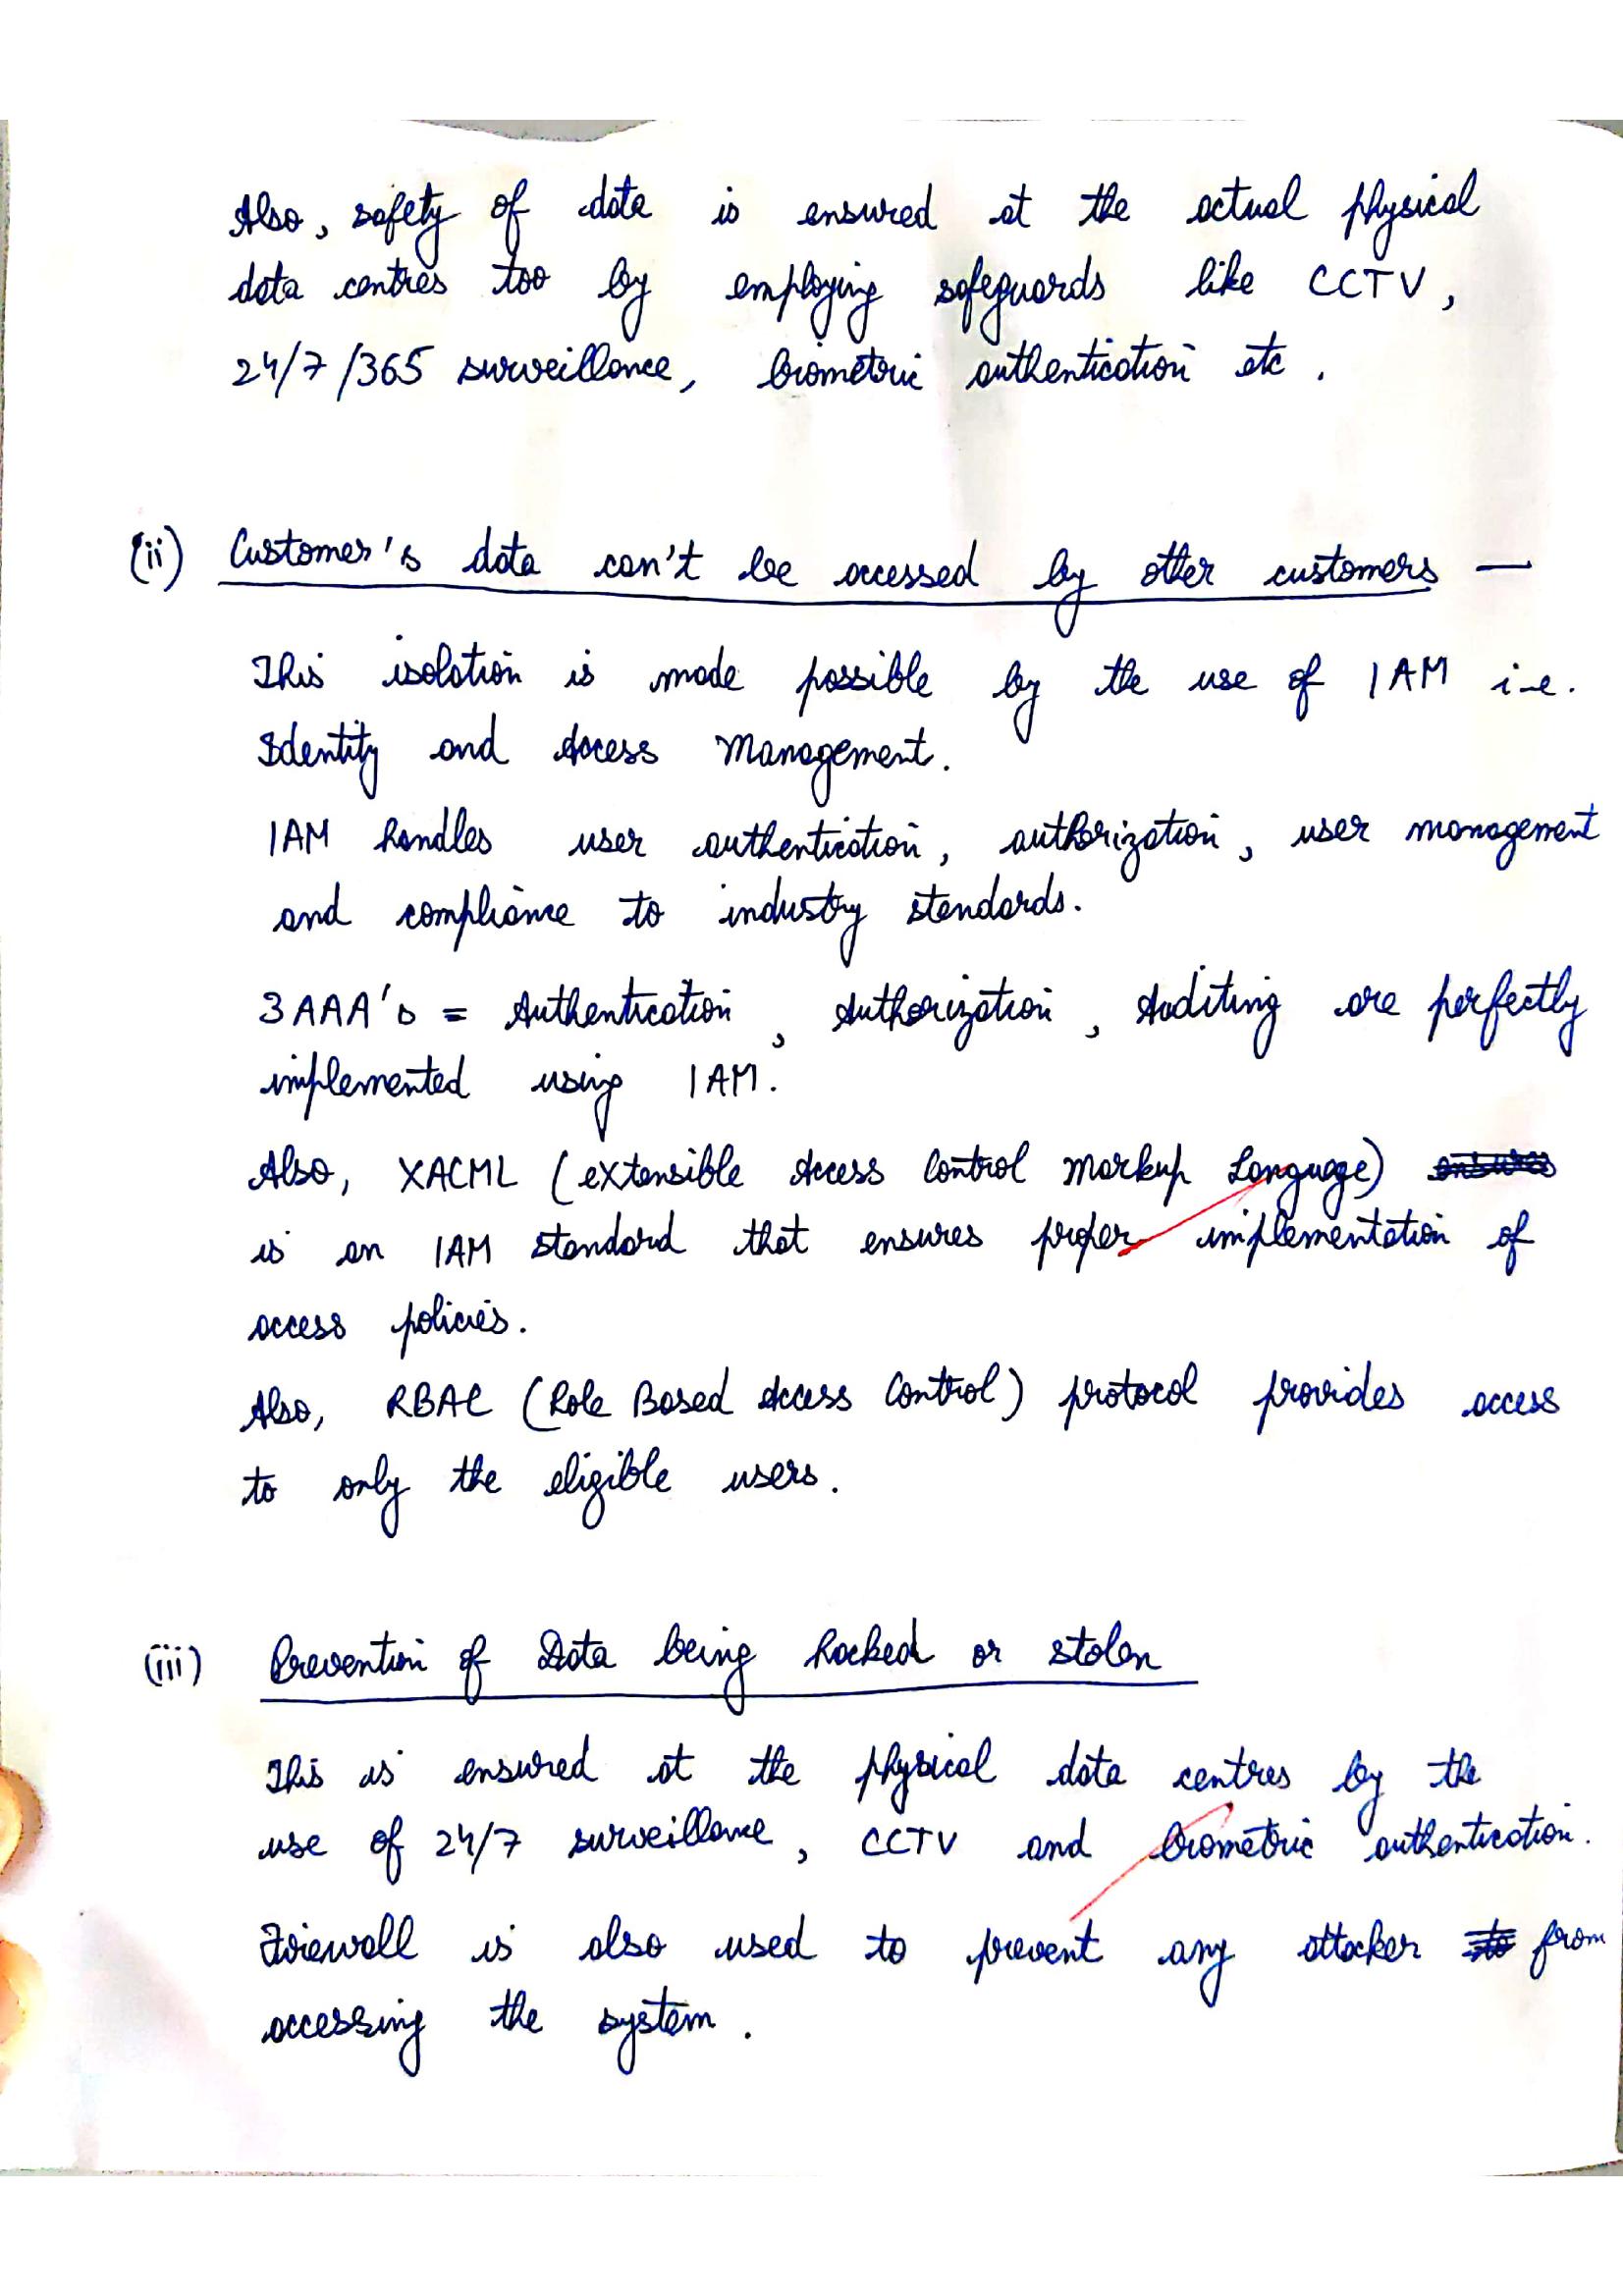 Also, safety of data is ensured at the actual physical
data centres too by employing safeguards like CCTV,
24/7/365 surveillance, biometric authentication etc.
(ii) Customer's data can't be accessed by other customers —
This isolation is made possible by the use of IAM i.e.
Identity and Access Management.
IAM handles user authentication, authorization, user management
and compliance to industry standards.
3 AAA's = Authentication, Authorization, Auditing are perfectly
implemented using IAM.
Also, XACML (eXtensible Access Control Markup Language)
is an IAM standard that ensures proper implementation of
access policies.
Also, RBAC (Role Based Access Control) protocol provides access
to only the eligible users.
(iii) Prevention of Data being hacked or stolen
This is ensured at the physical data centres by the
use of 24/7 surveillance, CCTV and biometric authentication.
Firewall is also used to prevent any attacker from
accessing the system.